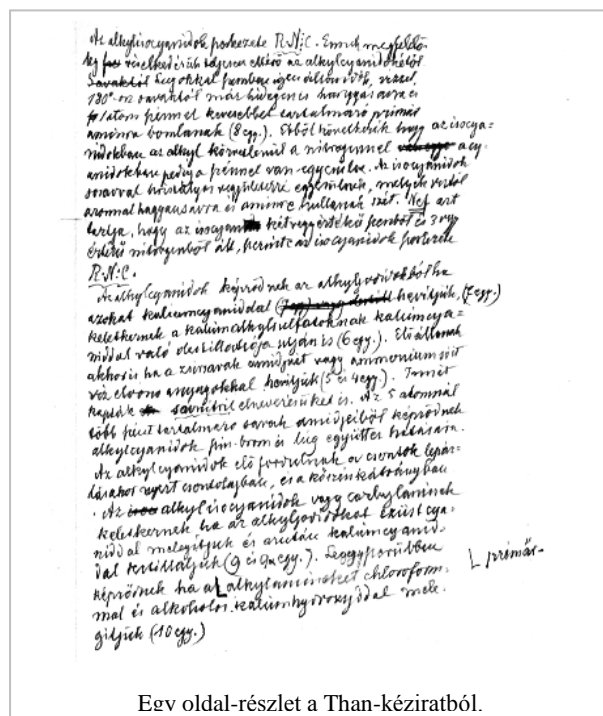 Az alkylisocyanidok szerkezete R.N:C. Ennek megfelelő-
leg viselkedésük teljesen eltérő az alkylcyanidokétól
Savaktól Lúgokkal szemben igen állandók, vízzel,
180°-on savaktól már hidegen is hangyasavra és
atommal kevesebbet tartalmazó primär
aminra bomlanak (8 egy.). Ebből következik hogy az isocya-
nidokban az alkyl közvetlenül a nitrogennel a cy-
anidokban pedig a szénnel van egyesülve. Az isocyanidok
sósavval kristályos vegyületekké egyesülnek, melyek víztől
azonnal hangyasavra és aminra hullanak szét. Nef azt
tartja, hogy az isocyan két vegyértékű szénből és 3 vegy
értékű nitrogenből áll, szerinte az isocyanidok szerkezete
R.N:C.
Az alkylcyanidok képződnek az alkyljodidokból ha
azokat kaliumcyaniddal hevítjük, (7 egy.)
keletkeznek a kaliumalkylsulfatoknak kaliumcya-
niddal való destillatiója utján is (6 egy.). Előállanak
akkor is ha a zsirsavak amidjait vagy ammoniumsóit
víz elvonó anyagokkal hevítjük (5 és 4 egy.). Innét
kapták savnitril elnevezésüket is. Az 5 atomnál
több szenet tartalmazó savak amidjeiből képződnek
alkylcyanidok brom és lúg együttes hatására.
Az alkylcyanidok elő fordulnak a csontok lepár-
lásakor nyert csontolajban, és a kőszénkátrányban
. Az alkylisocyanidok vagy carbylaminek
keletkeznek ha az alkyljodidokat ezüst cya-
niddal melegítjük és azután kaliumcyanid-
dal destilláljuk (9 és 9a egy.). Leggyorsabban
képződnek ha a alkylamineket chloroform- primär-
mal és alkoholos kaliumhydroxyddal mele-
gítjük (10 egy.)
Egy oldal-részlet a Than-kéziratból.